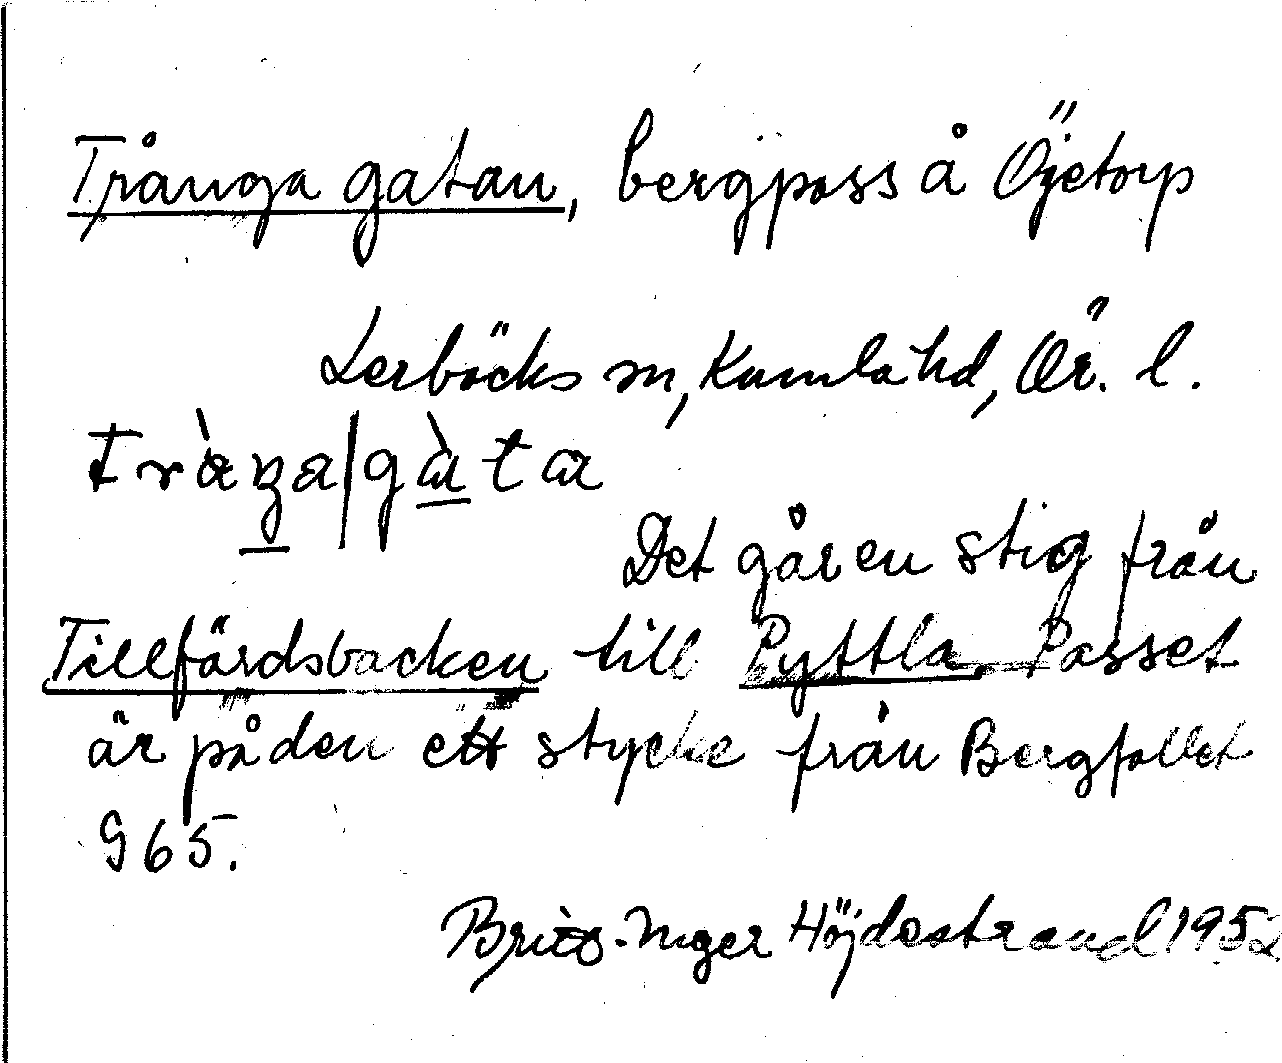 Trånga gatan, bergpass å Öjetorp
Lerbäcks sn, Kumla hd, Ör. l.
tràŋa|gàta
Det går en stig från
Tillfärdsbacken till Pyttla. Passet
är på den ett stycke från Bergfallet
965.
Britt-Inger Höjdestrand 1952